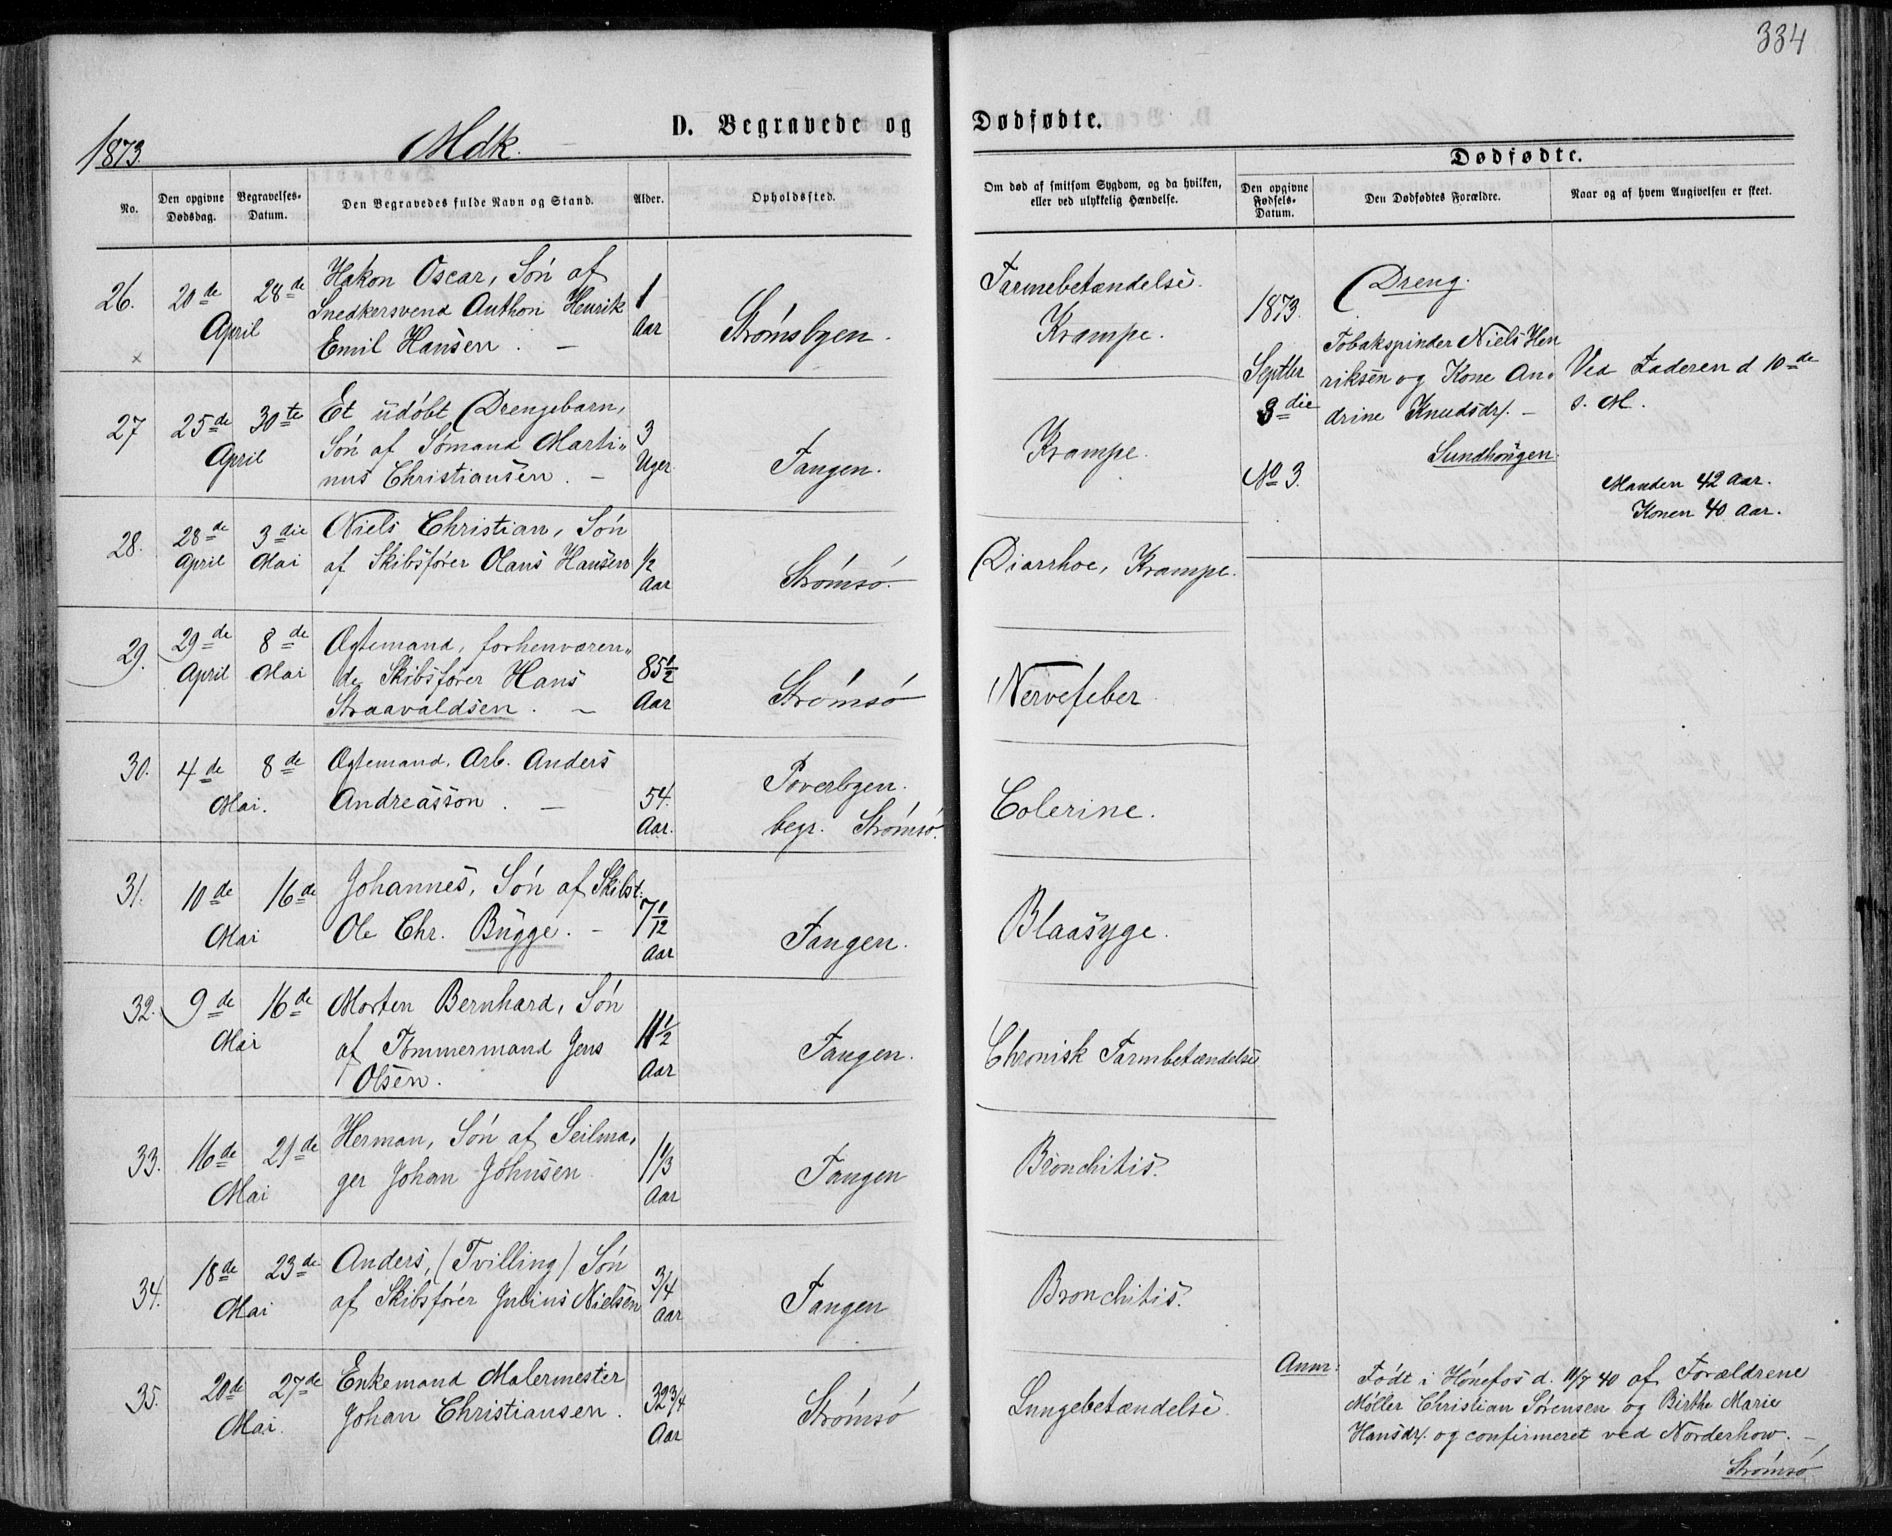 334
1873. Mdk. D. Begravede og Dødfødte.
Dødfødte.
No.
Den opgivne Dødsdag.
Begravelses-Datum.
Den Begravedes fulde Navn og Stand.
Alder.
Opholdssted.
Om død af smitsom Sygdom, og da hvilken,
eller ved ulykkelig Hændelse.
Den opgivne Fødsels-Datum.
Den Dødfødtes Forældre.
Naar og af hvem Angivelsen er skeet.
26. 20de 28de April
Hakon Oscar, Søn af
Snedkersvend Anthon Henrik
Emil Hansen. —
1 Aar
Strømsbyen.
Tarmebetændelse.
Krampe.
27 25de 30te April
Et udøbt Drengebarn,
Søn af Sømand Marti„
nus Christiansen. —
3 Uger
Tangen.
Krampe.
28. 28de April 3die Mai
Niels Christian, Søn
af Skibsfører Olaus Hansen
1/2 Aar
Strømsø.
Diarrhoe, Krampe.
29. 29de April 8de Mai
Ægtemand, forhenværen„
de Skibsfører Hans
Straavaldsen. —
85 1/2 Aar
Strømsø
Nervefeber
30. 4de 8de Mai.
Ægtemand, Arb. Anders
Andreasson. —
54. Aar.
Poverbyen.
begr. Strømsø.
Colerine.
31. 10de 16de Mai
Johannes, Søn af Skibst.
Ole Chr. Bugge. —
7 1/12 Aar
Tangen.
Blaasyge.
32. 9de 16de Mai
Morten Bernhard, Søn
af Tømmermand Jens
Olsen.
11 1/2 Aar
Tangen.
Chronisk Tarmbetændelse
33. 16de 21de Mai
Herman, Søn af Seilma,
ger Johan Johnsen
1 1/3 Aar
Tangen
Bronchitis.
34. 18de 23de Mai
Anders, (Tvilling) Søn
af Skibsfører Julius Nielsen
3/4 Aar
Tangen
Bronchitis.
35. 20de 27de Mai.
Enkemand Malermester
Johan Christiansen.
32 3/4 Aar
Strømsø
Lungebetændelse.
1873.
Septbr
3die
No 3.
Dreng.
Tobakspinder Niels Hen
riksen og Kone An„
drine Knudsdr. —
Sundhougen.
Ved Faderen d 10de
s. M.
Manden 42 Aar.
Konen 40 Aar.
Anm: Født i Hønefos d. 11/7 40 af Forældrene
Møller Christian Sørensen og Birthe Marie
Hansdr. og confirmeret ved Norderhow. —
Strømsø